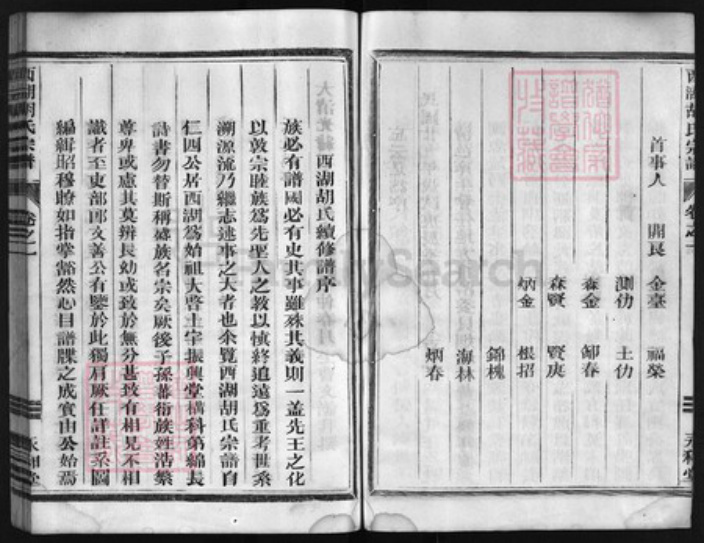 西湖胡氏宗譜
卷之一
首事人
開良 金臺 福榮
測仂 土仂
森金 鄒春
森賢 賢庚
炳金 根招
錦槐
海林
炳春
永和堂
西湖胡氏續修譜序
族必有譜國必有史其事雖殊其義則一蓋先王之化
以敦宗睦族爲先聖人之教以慎終追遠爲重考世系
溯源流乃繼志述事之大者也余覽西湖胡氏宗譜自
仨四公居西湖爲始祖大啓土宇振興堂構科第綿長
詩書勿替斯稱盛族名宗矣厥後子孫蕃衍族姓浩繁
尊卑或慮其莫辨長幼或致於無分甚致有相見不相
識者至吏部郎文善公有鑒於此獨肩厥任詳註系圖
編緝昭穆瞭如指掌豁然心目譜牒之成實由公始焉
西湖胡氏宗譜
卷之一
永和堂
FamilySearch